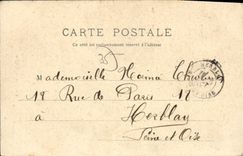 CARTE POSTALE
Ce côté est exclusivement réservé à l'adresse
35
Mademoiselle
18 Rue de Paris 18
à
Herblay
Seine et Oise